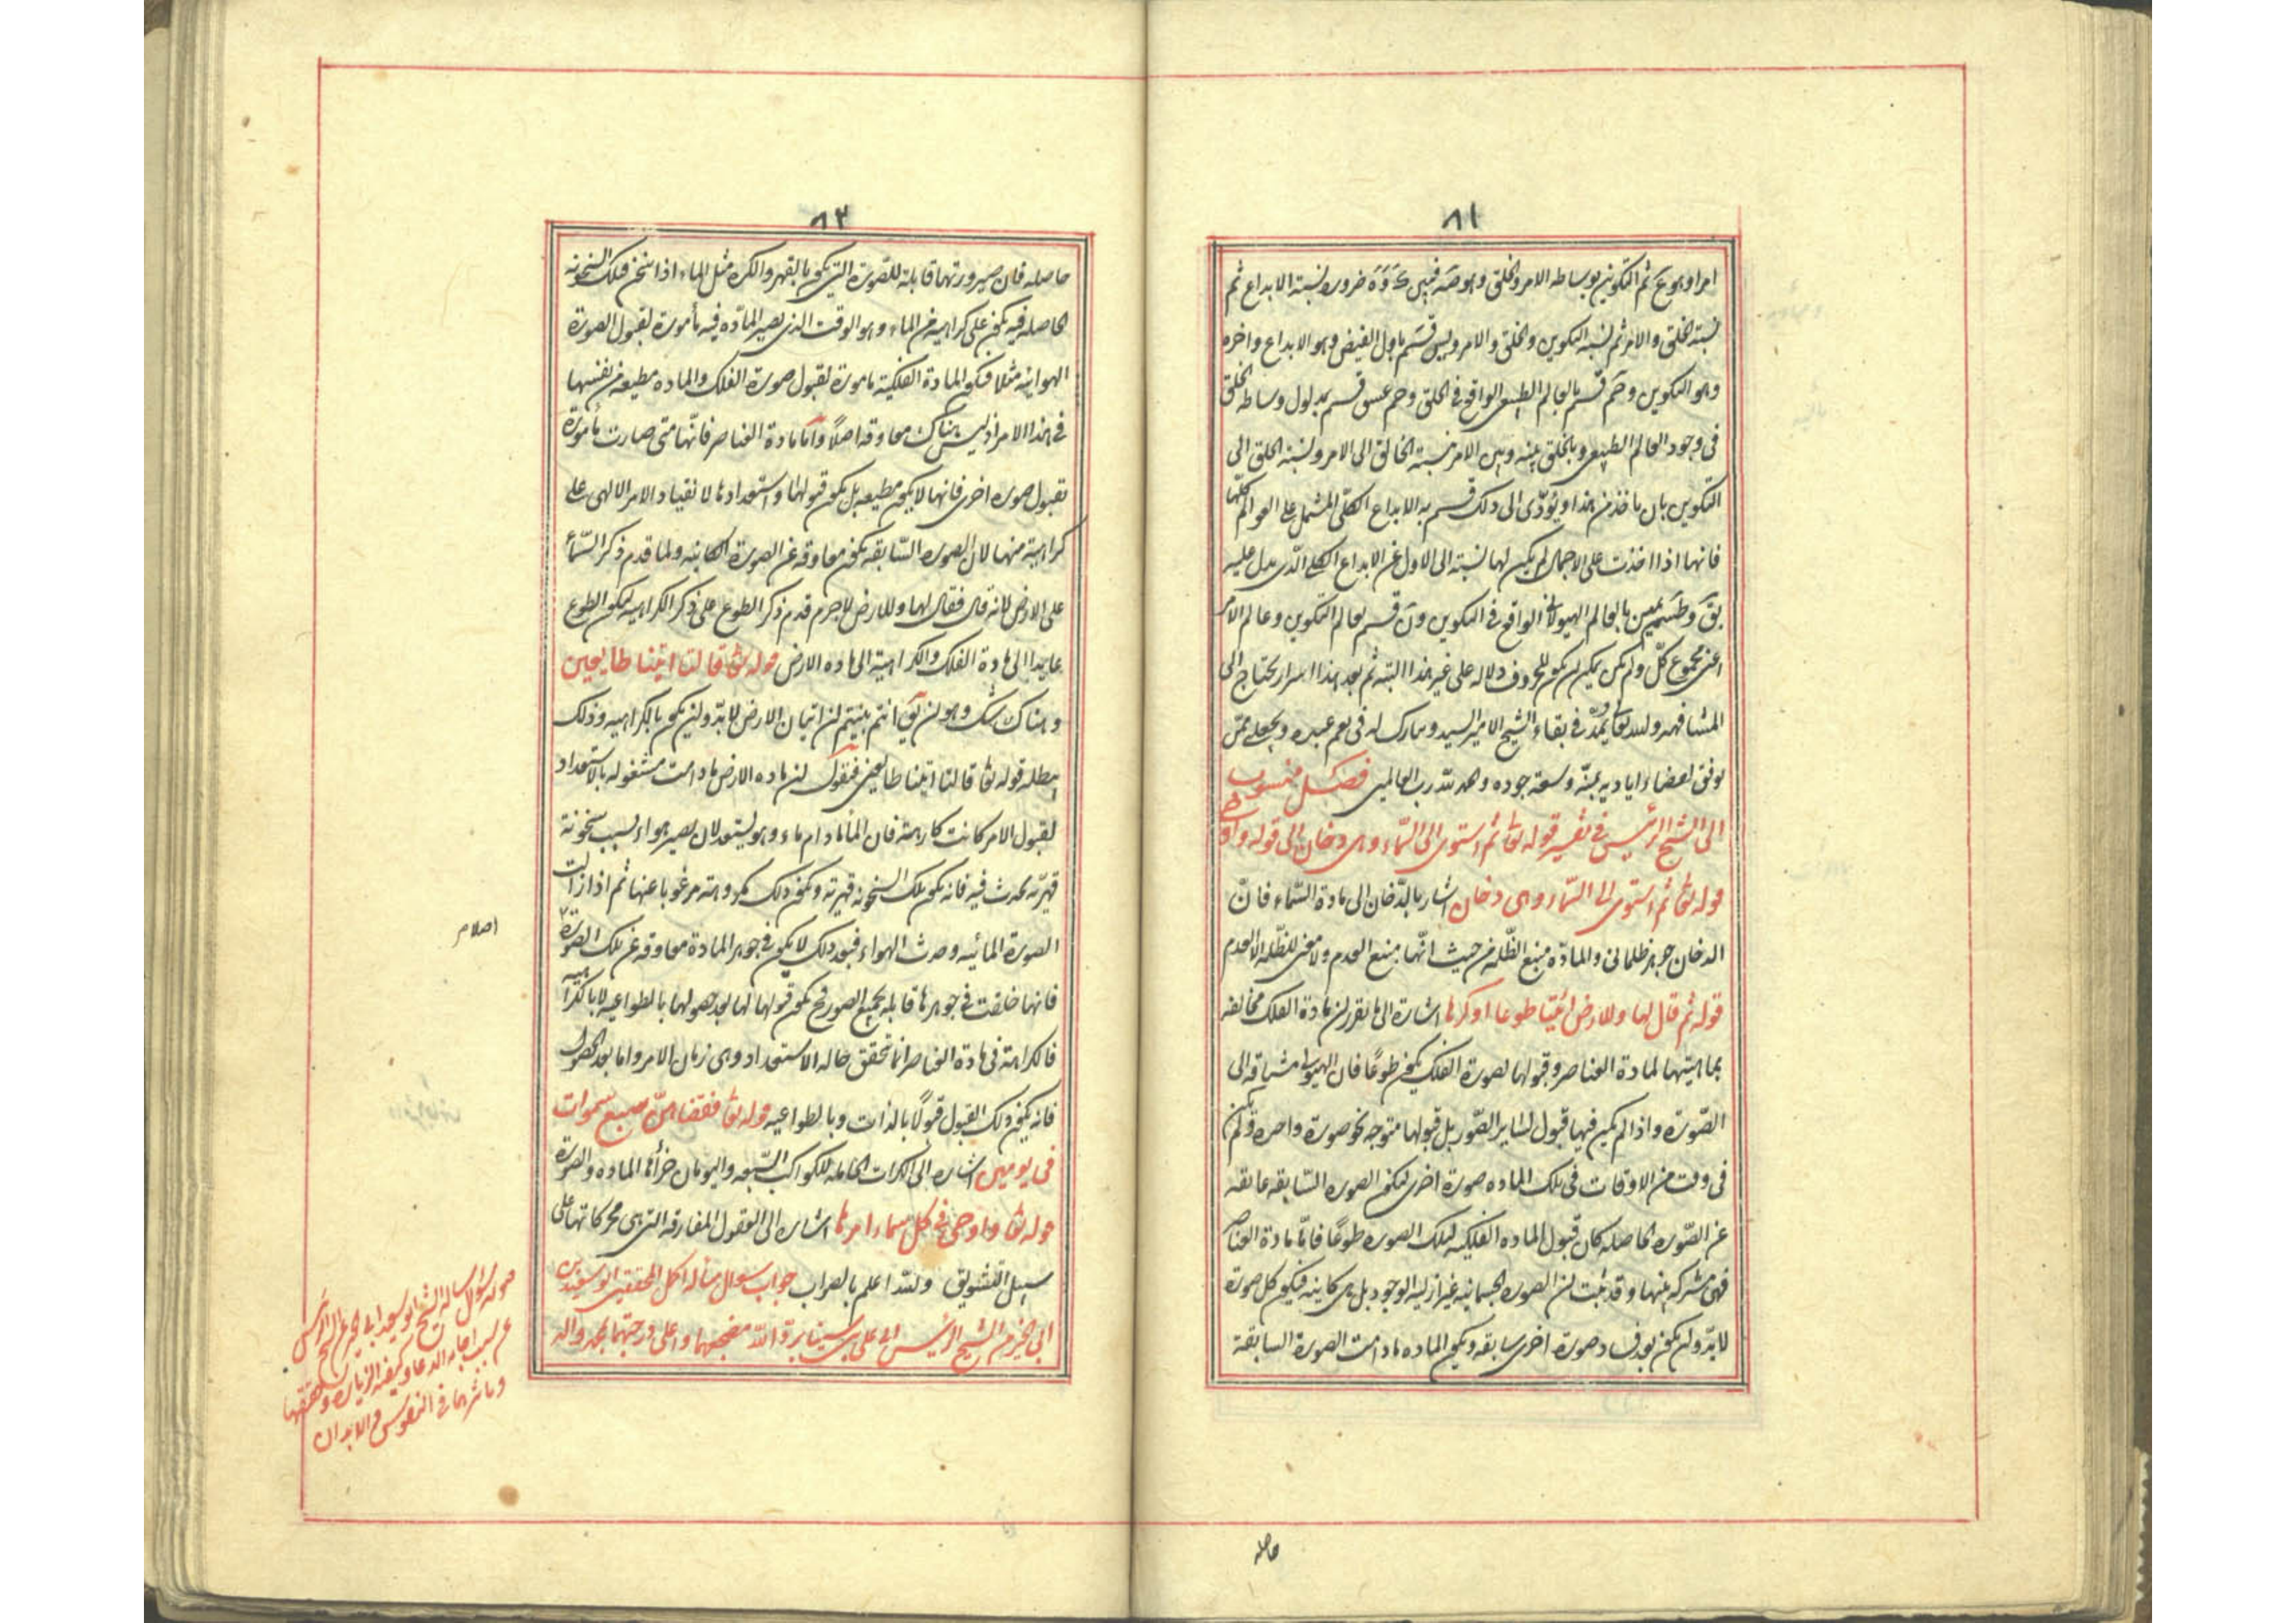 ٨١
امرا وهو ع ثم التكوين بوساطه الامر والخلق وهو ضرورة نسبة الابداع ثم
نسبة الخلق والامر ثم نسبة التكوين والخلق والامر ويس قسم باول الفيض وهو الابداع واخره
وهو التكوين وحم قسم بالعالم الطبيعى الواقع فى الخلق وحم عسق قسم بمدلول وساطه الخلق
فى وجود العالم الطبيعى وبالخلق بينه وبين الامر نسبة الخالق الى الامر ونسبة الخلق الى
التكوين بان ياخذ من هذا ويؤدى الى ذلك قسم به الابداع الكلى المشتمل على العوالم كلها
فانها اذا اخذت على الاجمال لم يكن لها نسبة الى الاول غير الابداع الكلى الذى يدل عليه
بق وطس يمين بالعالم الهيولانى الواقع فى التكوين ون قسم بعالم التكوين وعالم الامر
اعنى مجموع كل ولم يكن يمكن ان يكون للحروف دلاله على غير هذا البته ثم بعد هذا اسرار يحتاج الى
المشافهه والله تعالى يمد فى بقاء الشيخ الامير السيد ويبارك له فى نعم عبده ويجعلنى ممن
يوفق لقضاء اياديه بمنه وسعة جوده والحمد لله رب العالمين فصل منسوب
الى الشيخ الرئيس فى تفسير قوله تعا ثم استوى الى السماء وهى دخان الى قوله واوحى
قوله تعا ثم استوى الى السماء وهى دخان اشار بالدخان الى مادة السماء فان
الدخان جوهر ظلمانى والمادة منبع الظلمة من حيث انها منبع العدم ولا معنى للظلمه الا العدم
قوله ثم قال لها وللارض ائتيا طوعا او كرها اشارة الى ما تقرر ان مادة الفلك مخالفه
بماهيتها لمادة العناصر وقبولها لصورة الفلك يكون طوعا فان الهيولى مشتاقه الى
الصورة واذا لم يكن فيها قبول لساير الصور بل قبولها متوجه نحو صورة واحده ولم يكن
فى وقت من الاوقات فى تلك الماده صورة اخرى لتكون الصوره السابقه عايقه
عن الصوره الحاصله كان قبول الماده الفلكيه لتلك الصوره طوعا فاما مادة العناصر
فهى مشتركه بينها وقد ثبت ان الصوره الجسمانيه غير ازلية الوجود بل هى كاينه فيكون كل صورة
لابد وان يكون بعد فساد صورة اخرى سابقه ويكون الماده مادامت الصورة السابقة
حاصله
٨٢
حاصله فان صيرورتها قابلة للصورة التى يكون بالقهر والكره مثل الماء اذا سخن فتلك السخونه
الحاصله فيه يكون على كراهيه من الماء وهو الوقت الذى يصير الماده فيه مأمورة لقبول الصورة
الهوائيه مثلا فيكون المادة الفلكية مامورة لقبول صورة الفلك والماده مطيعه من نفسها
فى هذا الامر اذ ليس هناك معاوقه اصلا واما مادة العناصر فانها متى صارت مأمورة
بقبول صوره اخرى فانها لا يكون مطيعه بل يكون قبولها واستعدادها لانقياد الامر الالهى على
كراهية منها لان الصوره السابقه يكون معاوقه عن الصورة الكاينه ولما قدم ذكر السماء
على الارض لانه قال فقال لها وللارض لاجرم قدم ذكر الطوع على ذكر الكراهيه ليكون الطوع
عايدا الى مادة الفلك والكراهية الى ماده الارض قوله تعا قالتا اتينا طايعين
وهناك شك وهو ان يق انتم بينتم ان اتيان الارض لابد وان يكون بالكراهيه وذلك
يبطله قوله تعا قالتا اتينا طايعين فنقول ان ماده الارض مادامت مشغوله بالاستعداد
لقبول الامر كانت كارهة فان الماء مادام ماء وهو يستعد لان يصير هواء بسبب سخونة
قهرية تحدث فيه فانه يكون تلك السخونه قهرية ويكون ذلك مكروهته مرغوبا عنها ثم اذا زالت
الصورة المائيه وحدث الهواء فبعد ذلك لا يكون فى جوهر المادة معاوقه عن تلك الصورة
فانها خلقت فى جوهرها قابله لجميع الصور فح يكون قبولها لها بعد حصولها بالطواعيه لا بالكراهيه
فالكراهة فى مادة العناصر انما تحقق حاله الاستعداد وهى زمان الامر واما بعد الحصول
فانه يكون ذلك القبول قبولا بالذات وبالطواعيه قوله تعا فقضاهن سبع سموات
فى يومين اشاره الى الكرات الحامله للكواكب السبعه واليومان جزأها الماده والصورة
قوله تعا واوحى فى كل سماء امرها اشاره الى العقول المفارقه التى هى محركاتها على
سبيل التشويق والله اعلم بالصواب جواب سوال ساله اكمل المحققين ابو سعيد بن
ابى الخير من الشيخ الرئيس ابى على بن سينا برد الله مضجعهما واعلى درجتهما بمحمد واله
اصلام
الشيخ ابو سعيد ابى الخير عن الشيخ الرئيس
عن سبب اجابه الدعا وكيفية الزياره وحقيقتها
وتاثيرها فى النفوس والابدان